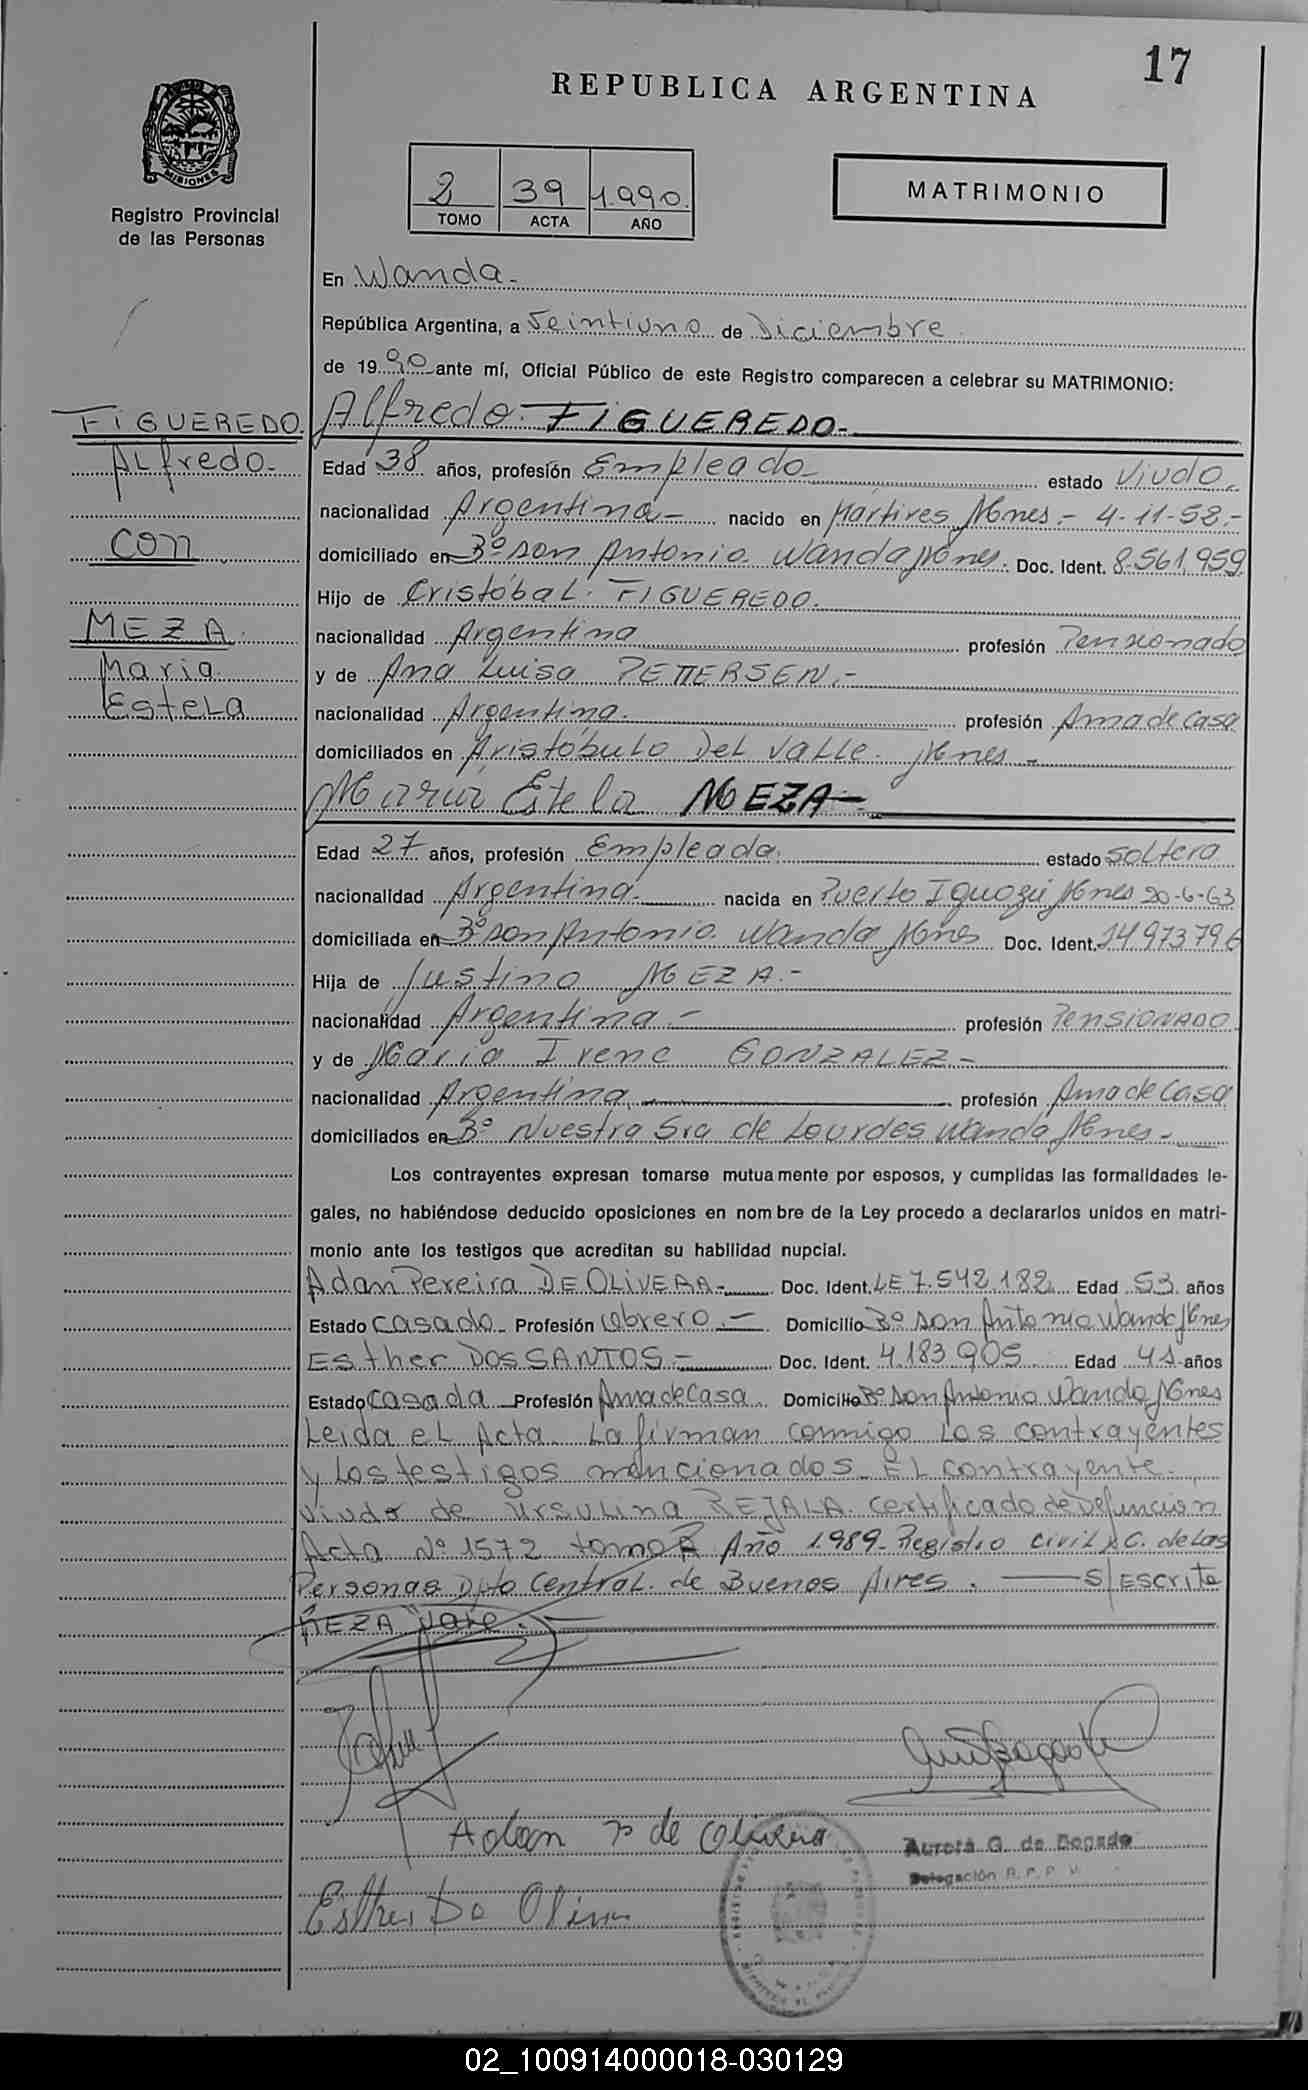 17
REPUBLICA ARGENTINA
MISIONES
Registro Provincial
de las Personas
2 39 1.990.
TOMO ACTA AÑO
MATRIMONIO
En Wanda.-
República Argentina, a Veintiuno de Diciembre
de 19 90 ante mí, Oficial Público de este Registro comparecen a celebrar su MATRIMONIO:
FIGUEREDO
Alfredo.-
con
MEZA
Maria
Estela
Alfredo FIGUEREDO.-
Edad 38 años, profesión Empleado estado Viudo.-
nacionalidad Argentina.- nacido en Mártires Mnes.- 4-11-52.-
domiciliado en Bº San Antonio. Wanda Mnes. Doc. Ident. 8.561.959
Hijo de Cristóbal FIGUEREDO.
nacionalidad Argentina profesión Pensionado
y de Ana Luisa PETTERSEN.-
nacionalidad Argentina. profesión Ama de casa
domiciliados en Aristóbulo Del Valle. Mnes -
Maria Estela MEZA-
Edad 27 años, profesión Empleada. estado soltera
nacionalidad Argentina. nacida en Puerto Iguazú Mnes 20-6-63
domiciliada en Bº San Antonio. Wanda Mnes Doc. Ident. 14.973.796
Hija de Justino MEZA.-
nacionalidad Argentina.- profesión PENSIONADO.
y de Maria Irene GONZALEZ.-
nacionalidad Argentina. profesión Ama de Casa
domiciliados en Bº Nuestra Sra de Lourdes Wanda Mnes.-
Los contrayentes expresan tomarse mutuamente por esposos, y cumplidas las formalidades le-
gales, no habiéndose deducido oposiciones en nombre de la Ley procedo a declararlos unidos en matri-
monio ante los testigos que acreditan su habilidad nupcial.
Adan Pereira DE OLIVERA.- Doc. Ident. LE 7.542.182 Edad 53 años
Estado casado Profesión Obrero.- Domicilio Bº San Antonio Wanda Mnes
Esther DOS SANTOS.- Doc. Ident. 4.183.905 Edad 41 años
Estado casada Profesión Ama de Casa. Domicilio Bº San Antonio Wanda Mnes
Leida el Acta. La firman conmigo los contrayentes
y los testigos mencionados. El contrayente.
Viudo de Ursulina REJALA. certificado de Defuncion
Acta Nº 1572 tomo Año 1.989- Registro Civil y C. de Las
Personas Dpto Central. de Buenos Aires. S/ESCRITO
MEZA Vale.
Adan P de Olivera
Aurora G. de Bogado
Delegación R. P. P.
Esther Do
02_100914000018-030129